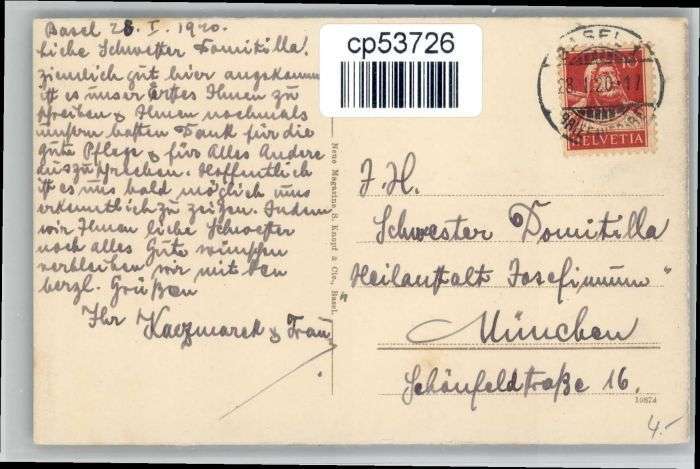 Basel 28. I. 1920.
Liebe Schwester Domitilla!
ziemlich gut hier angekommen
ist es unser erstes Ihnen zu
schreiben & Ihnen nochmals
unsern besten Dank für die
gute Pflege & für Alles Andere
auszusprechen. Hoffentlich
ist es uns bald möglich uns
erkenntlich zu zeigen. Indem
wir Ihnen liebe Schwester
noch alles Gute wünschen
verbleiben wir mit den
herzl. Grüßen
Ihr Kaczmarek & Frau
cp53726
Neue Magazine, S. Knopf & Cie., Basel.
BASEL
28. I. 20.-17
HELVETIA
J. H.
Schwester Domitilla
"Heilanstalt Josefinum"
München
Schönfeldstraße 16.
10874
4.-